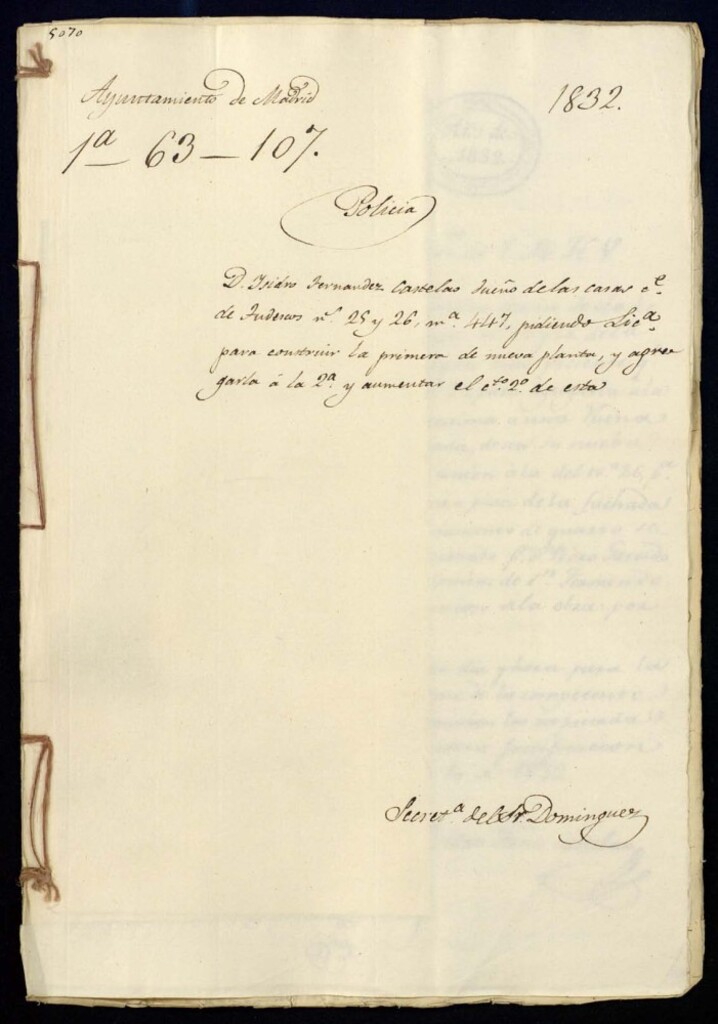 5070
Ayuntamiento de Madrid
1832.
1ª - 63 - 107.
Policia
D. Isidro Fernandez Castelao dueño de las casas c.e
de Tudescos n.s 25 y 26, m.a 447, pidiendo Lic.a
para construir la primera de nueva planta, y agre
garla á la 2.a y aumentar el c.to 2.o de esta
Secret.a del Sr. Dominguez